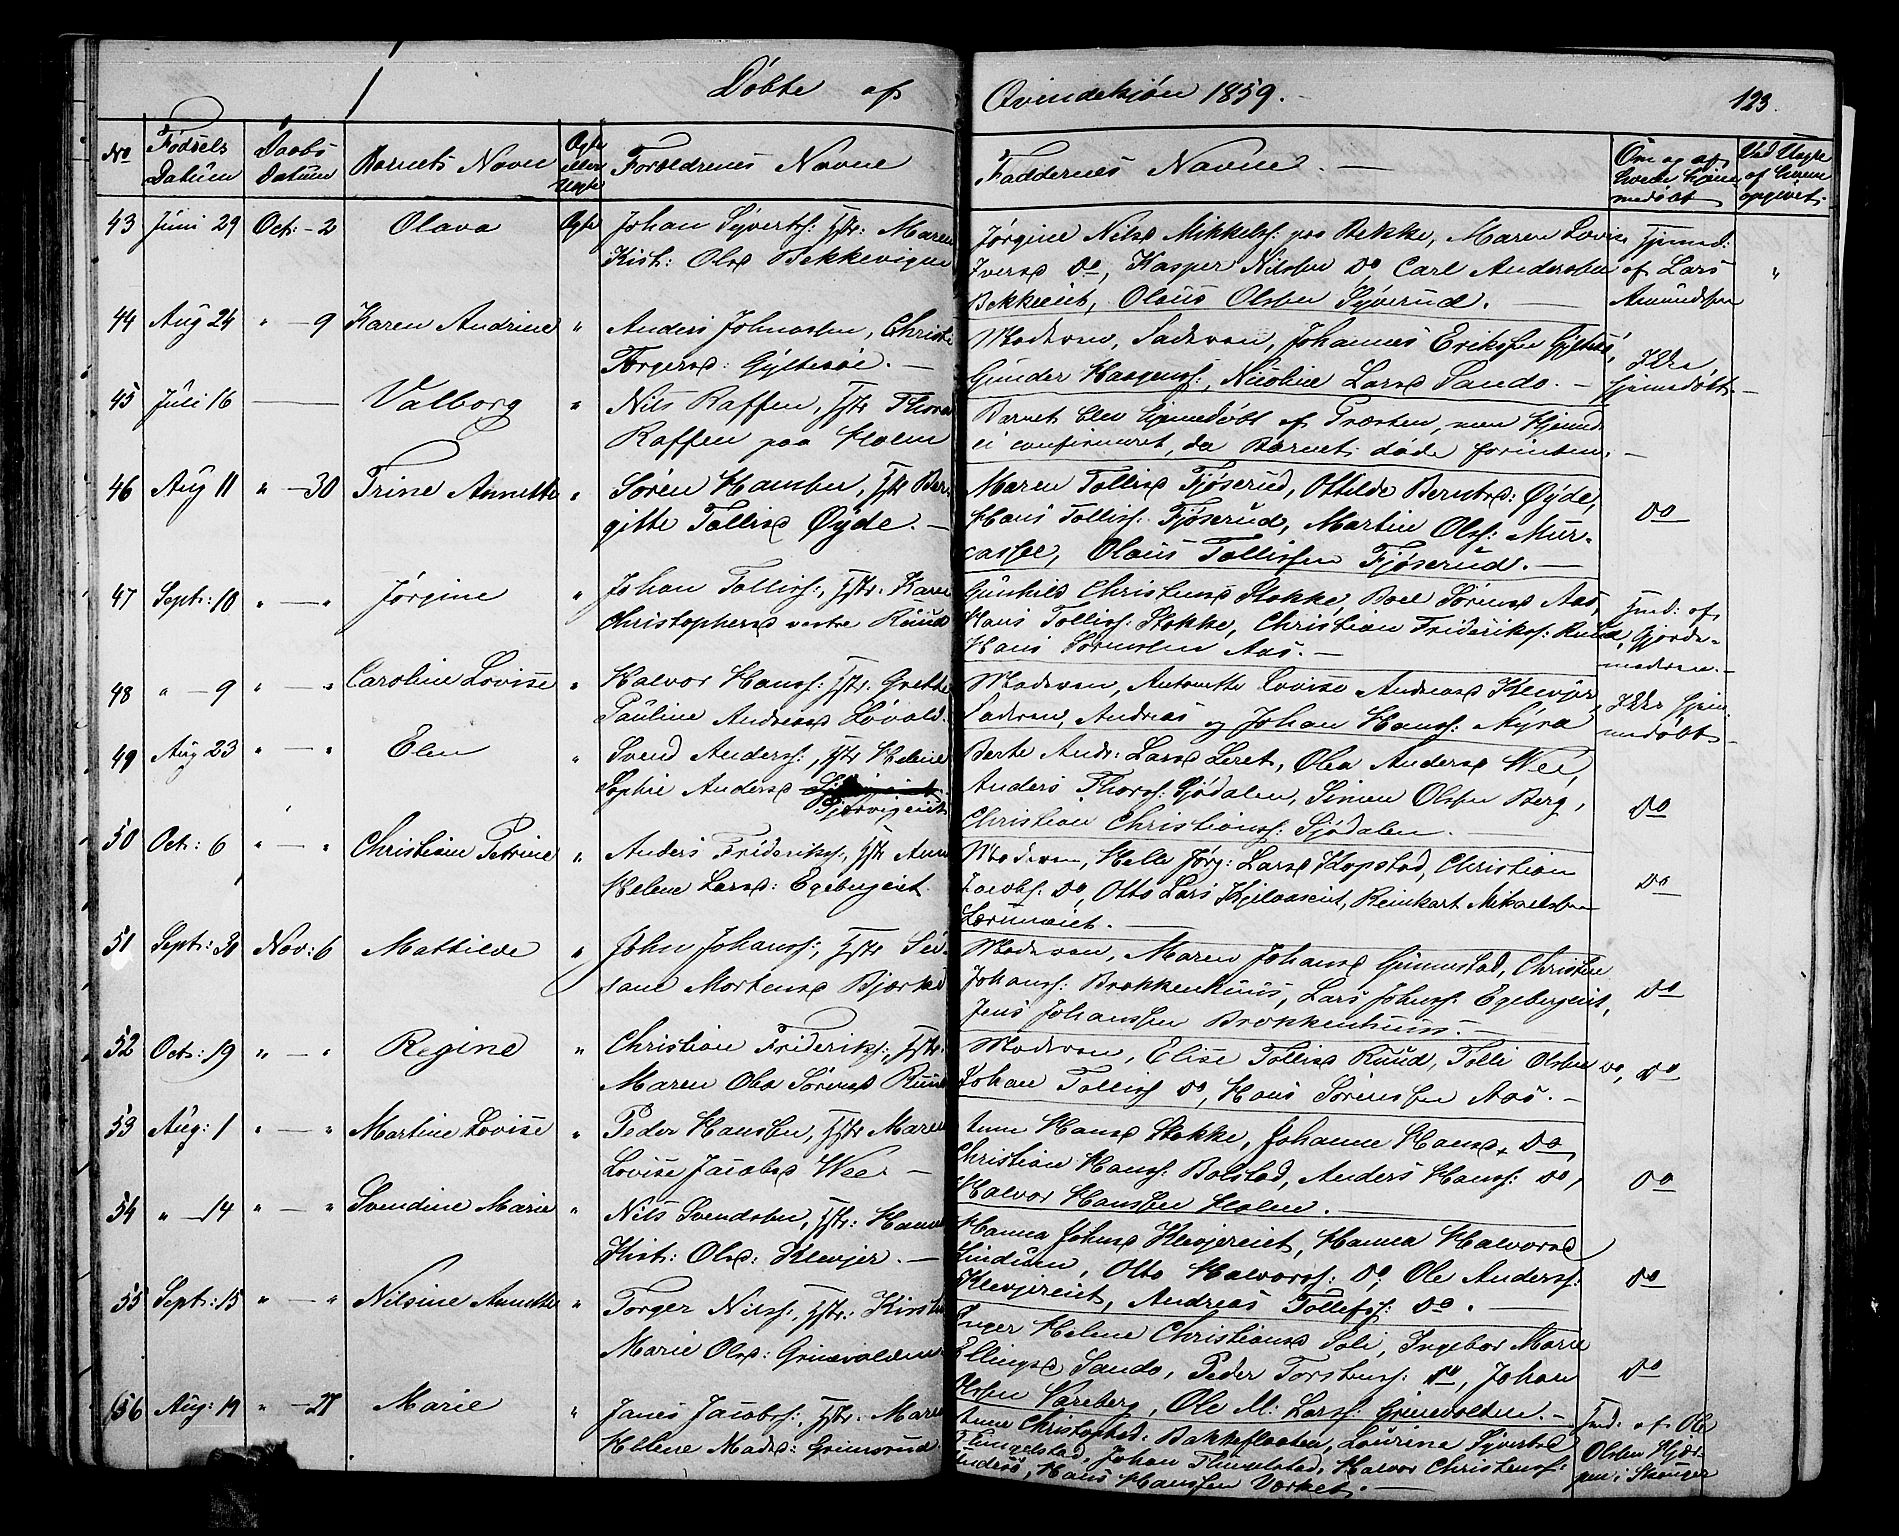 Døbte af Qvindekjøn 1859. 123.
No Fødsels Datum Daabs Datum Barnets Navn Ægte eller Uægte Forældrenes Navne
Faddernes Navne. — Om og af hvem hjemmedøbt Ved Uægte opgivet.
43 Juni 29 Oct: - 2 Olava Ægte Johan Syverts: Hstr: Maren
Kist: Olsd Bekkevigen
Jørgine Nilsd Mikkelss: paa Bekke, Maren Lovise
Iversd do, Kasper Nilsen do, Carl Andersen
Bekkeeiet, Olaus Olsen Syverud. —
Hjemd: af Lars Amundsen "
44 Aug 24 " - 9 Karen Andrine " Anders Johnassen, Christ
Torgersd: Gyltesøe. —
Moderen, Faderen, Johannes Eriksen Gyltesø,
Gunder Haagenss:, Nicoline Larsd Sando. —
Ikke hjemdøbt. —
45 Juli 16 — Valborg " Nils Raffen, Hstr Thora
Raffen paa Holm
Barnet blev hjemmedøbt af Præsten, men Hjemd:
ei confirmeret, da Barnet døde forinden. —
46 Aug 11 " - 30 Trine Annette " Søren Hansen, Hstr Ber-
gitte Tollisd Øyde. —
Maren Tollisd Fjøserud, Ottilde Berntsd: Øyde,
Hans Tolliss: Fjøserud, Martin Olss: Mur-
casse, Olaus Tollissen Fjøserud. —
do
47 Sept: 10 " — " Jørgine " Johan Tolliss:, Hstr: Karen
Christophersd vestre Ruud
Gunhild Christensd Stokke, Boel Sørensd Aas,
Hans Tolliss: Stokke, Christian Frideriks: Ruud,
Hans Sørensen Aas. —
Hmd: af Gjorde-
moderen. —
48 " — 9 " — " Caroline Lovise " Halvor Hanss: Hstr: Grethe
Pauline Andreasd Løvald.
Moderen, Antonette Lovise Andreasd Klevjer,
Faderen, Andreas og Johan Hanss: Nyra
Ikke hjem-
medøbt —
49 Aug 23 " — " Elen " Svend Anderss:, Hstr Helene
Sophie Andersd
Berte Andr: Larsd Leret, Olea Andersd Wee,
Anders Thorss: Sjødalen, Simen Olsen Berg,
Christian Christianss: Sjødalen. —
do
50 Oct: 6 " — " Christine Petrine " Anders Frideriks:, Hstr Anne
Helene Larsd: Egebergeiet.
Moderen, Helle Jørg: Larsd Klopstad, Christian
Jacobs: do, Otto Lars Kjelaaseiet, Reinhart Mikaelsen
do
51 Sept: 30 Nov: 6 Mathilde " John Johanss:, Hstr Su-
sane Mortensd Bjerke
Moderen, Maren Johansd Gunnestad, Christen
Johanss: Brokkenhuus, Lars Johnss: Egebergeiet,
Jens Johanssen Brokkenhuus. —
do
52 Oct: 19 " — " Regine " Christian Frideriks:, Hstr:
Maren Olea Sørensd Ruud
Moderen, Elise Tollisd Ruud, Tolli Olsen do,
Johan Tolliss do, Hans Sørensen Aas. —
do
53 Aug: 1 " — " Martine Lovise " Peder Hanssen, Hstr Maren
Lovise Jacobsd Wee. —
Anne Hansd Stokke, Johanne Hansd do,
Christian Hanss: Bolstad, Anders Hanss: do,
Halvor Hanssen Holm. —
do
54 " — 14 " — " Svendine Marie " Nils Svendsen, Hstr: Hanna
Kist: Olsd: Klevjer. —
Hanna Johnsd Klevjereiet, Hanna Halvorsd
Lindum, Otto Halvorss: do, Ole Anderss:
Klevjereiet, Andreas Tollefs: do. —
do
55 Sept: 15 " — " Nilsine Annette " Torger Nilss:, Hstr: Kirsten
Marie Olsd: Grinevolden
Inger Helene Christiansd Soli, Ingebor Marie
Ellingsd Sando, Peder Torstenss: do, Johan
Olsen Vareberg, Ole M: Larss: Grinevolden. —
do
56 Aug: 19 " - 27 Marie " Janes Jacobss:, Hstr: Maren
Hellene Madsd: Grimsrud.
Anne Christophed: Bakkeflaaten, Laurina Syvertsd
Flingelstad, Johan Flingelstad, Halvor Christenss:
Hans Hanssen Værket. —
Hmd: af Ole
Olsen